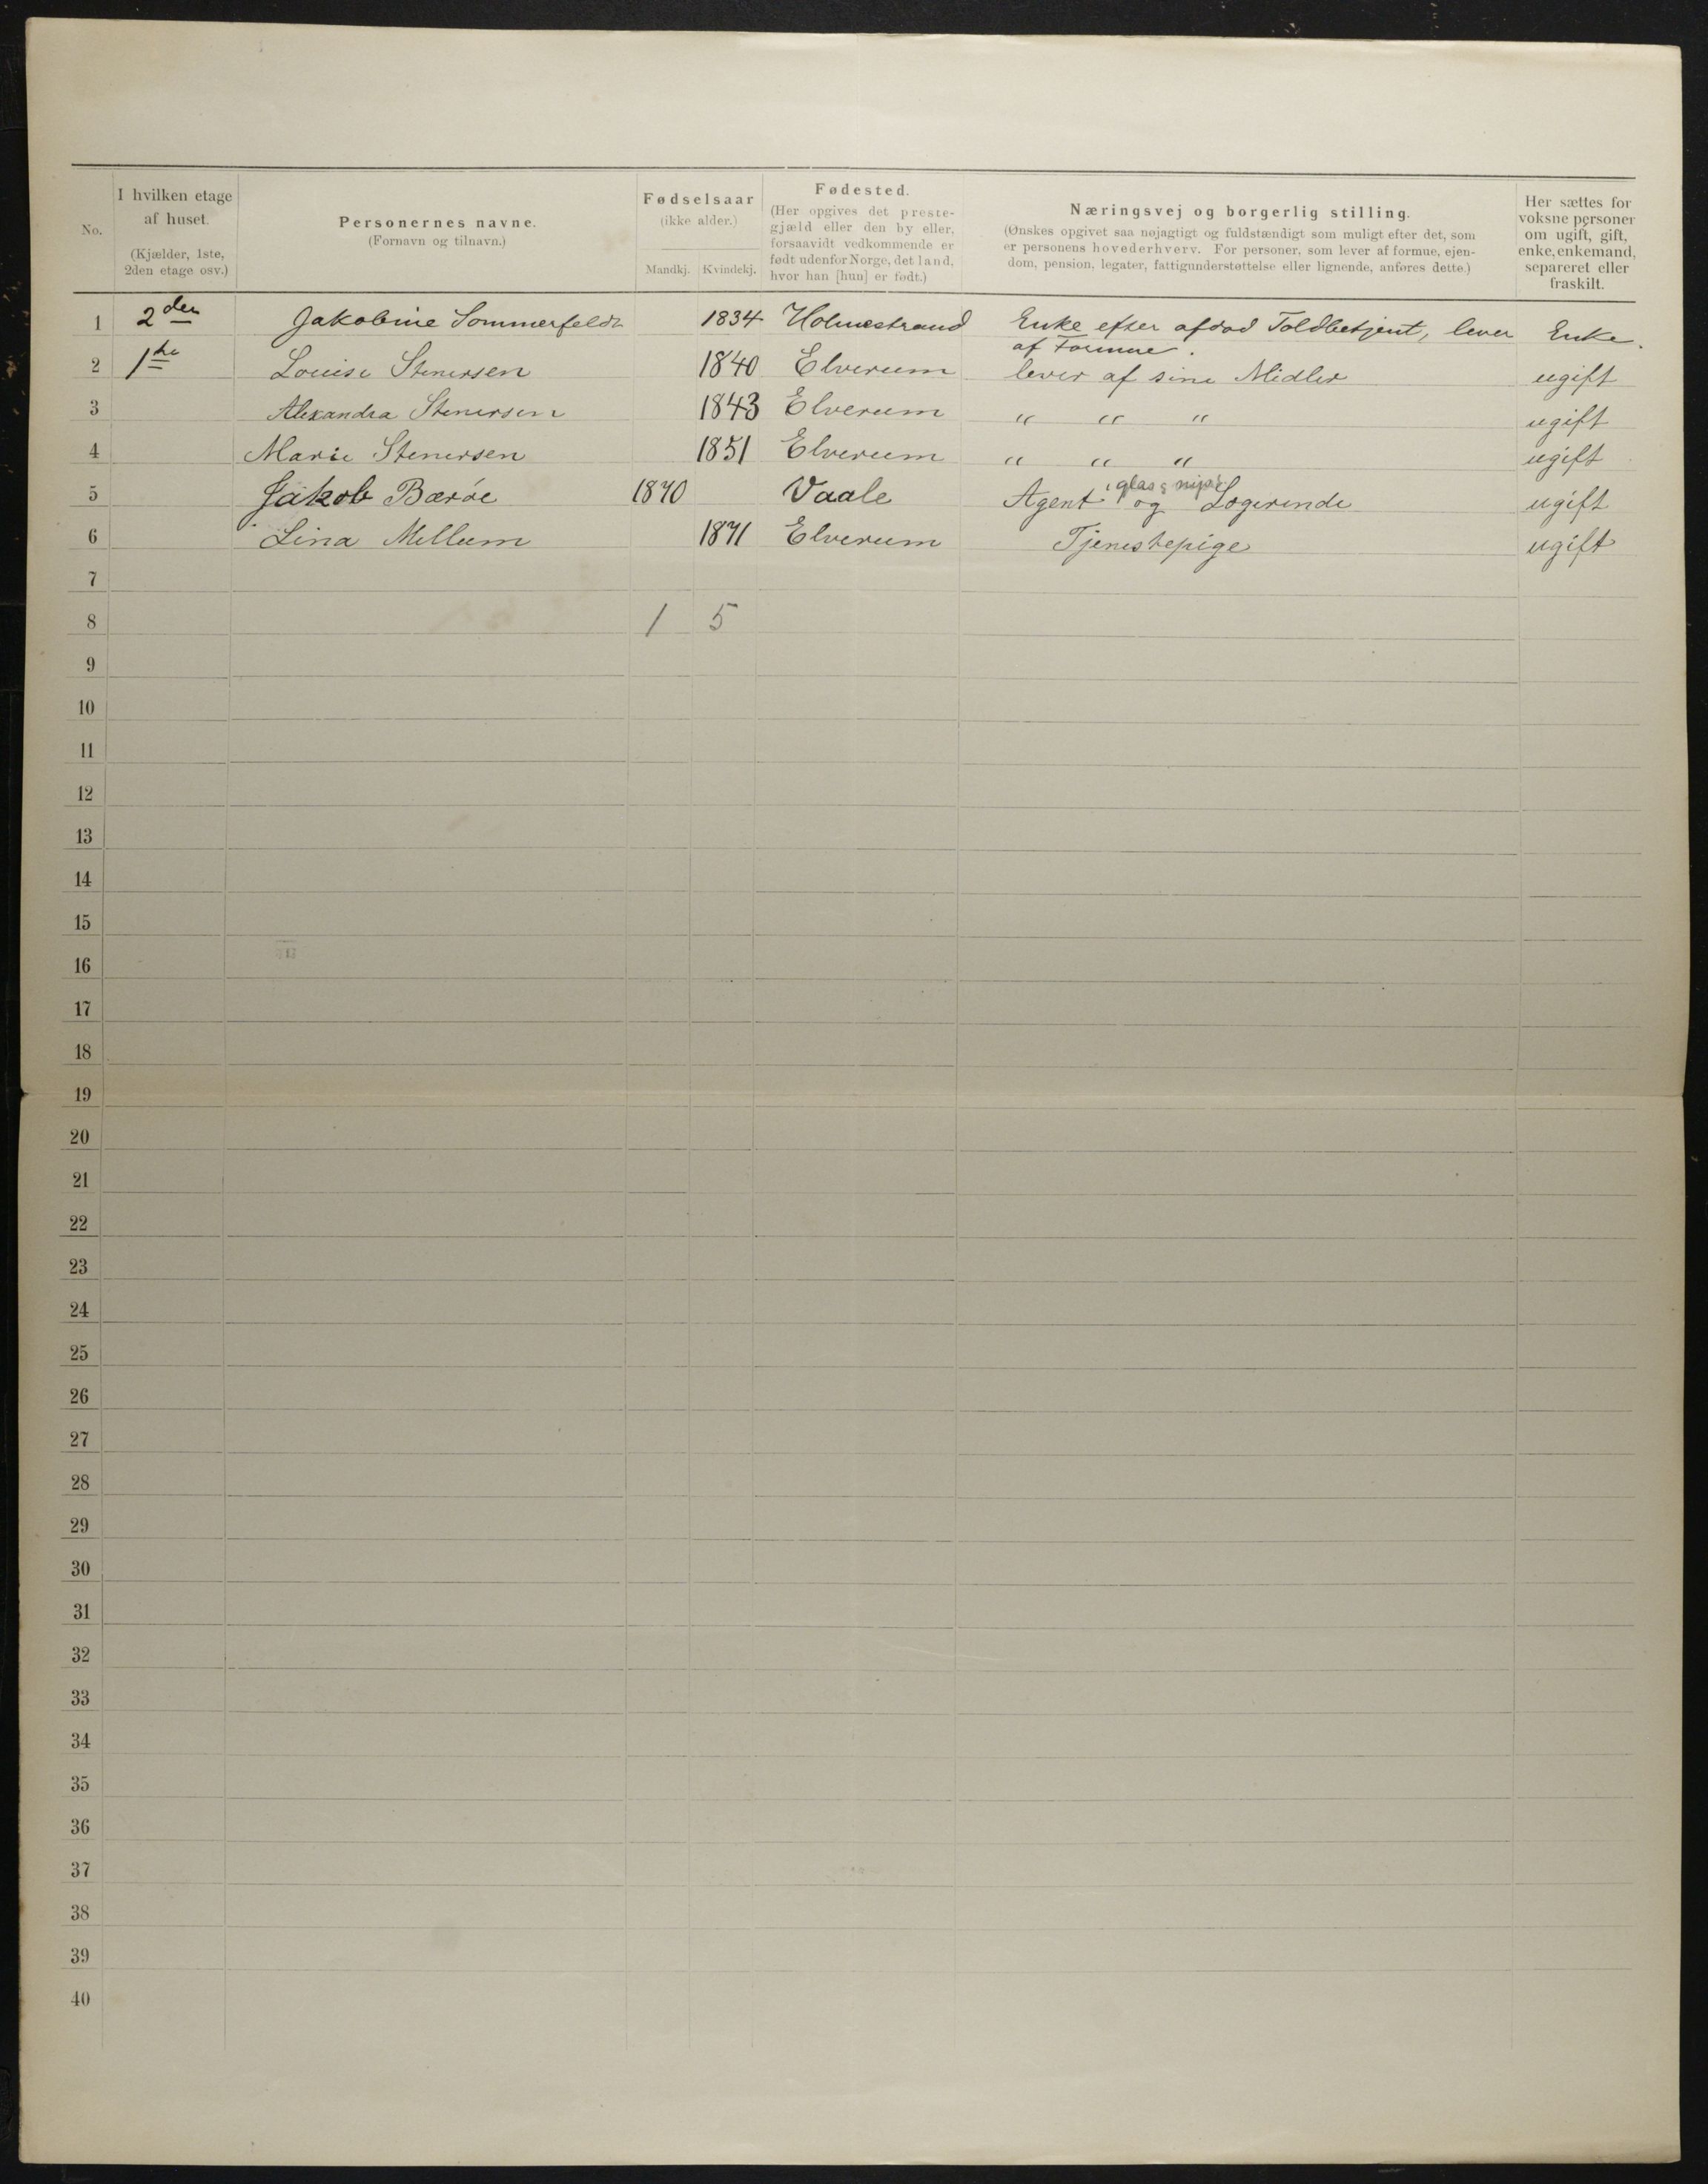 No.
I hvilken etage
af huset.
(Kjælder, 1ste,
2den etage osv.)
Personernes navne.
(Fornavn og tilnavn.)
Fødselsaar
(ikke alder.)
Mandkj. Kvindekj.
Fødested.
(Her opgives det preste-
gjæld eller den by eller,
forsaavidt vedkommende er
født udenfor Norge, det land,
hvor han [hun] er født.)
Næringsvej og borgerlig stilling.
(Ønskes opgivet saa nøjagtigt og fuldstændigt som muligt efter det, som
er personens hovederhverv. For personer, som lever af formue, ejen-
dom, pension, legater, fattigunderstøttelse eller lignende, anføres dette.)
Her sættes for
voksne personer
om ugift, gift,
enke, enkemand,
separeret eller
fraskilt.
1 2den Jakobine Sommerfeldt 1834 Holmestrand Enke efter afdød Toldbetjent, lever Enke.
af Formue.
2 1ste Louise Stenersen 1840 Elverum lever af sine Midler ugift
3 Alexandra Stenersen 1843 Elverum " " " ugift
4 Marie Stenersen 1851 Elverum " " " ugift
i glas &
5 Jakob Bærøe 1870 Vaale Agent og Logerende ugift
6 Lina Mellum 1871 Elverum Tjenestepige ugift
7
8 1 5
9
10
11
12
13
14
15
16
17
18
19
20
21
22
23
24
25
26
27
28
29
30
31
32
33
34
35
36
37
38
39
40